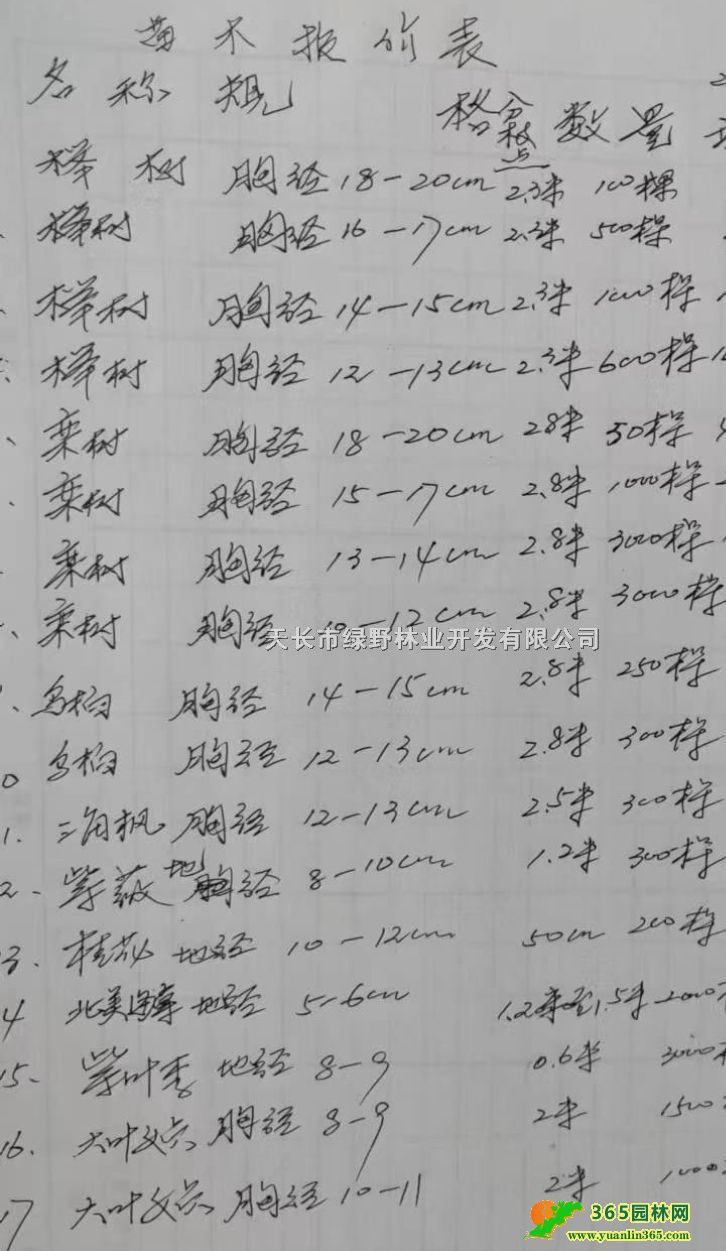 苗木报价表
名称 规格 分枝点 数量
榉树 胸径18-20cm 2.3米 100棵
榉树 胸径16-17cm 2.3米 500棵
榉树 胸径14-15cm 2.3米 1000棵
榉树 胸径12-13cm 2.3米 600棵
栾树 胸径18-20cm 28米 50棵
栾树 胸径15-17cm 2.8米 1000棵
栾树 胸径13-14cm 2.8米 3000棵
栾树 胸径10-12cm 2.8米 3000棵
天长市绿野林业开发有限公司
乌桕 胸径14-15cm 2.8米 250棵
0 乌桕 胸径12-13cm 2.8米 300棵
1. 三角枫 胸径12-13cm 2.5米 300棵
2. 紫薇 地径8-10cm 1.2米 300棵
3. 桂花 地径10-12cm 50cm 200棵
4 北美海棠 地径5-6cm 1.2米至1.5米 2000
15. 紫叶李 地径8-9 0.6米 3000
16. 大叶女贞 胸径8-9 2米 1500
17 大叶女贞 胸径10-11 2米 1000
365园林网
www.yuanlin365.com